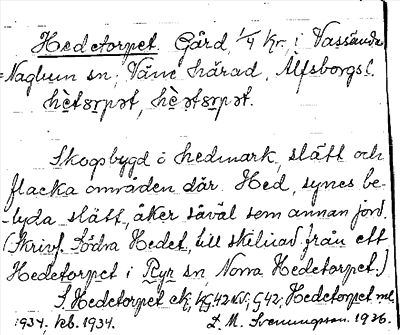 Hedetorpet. Gård, 1/4 kr, i Vassända
=Naglum sn; Väne härad, Älfsborgs l.
hètərpət, hè ətərpət.
Skogsbygd i hedmark, slätt och
flacka områden där. Hed, synes be-
-tyda slätt, åker såväl som annan jord.
(Skrivf. Södra Hedet, till skilnad från ett
Hedetorpet i Ryr sn, Norra Hedetorpet.)
S. Hedetorpet ek, Hedetorpet
1934, kb. 1934. L. M. Svenungsson. 1926.